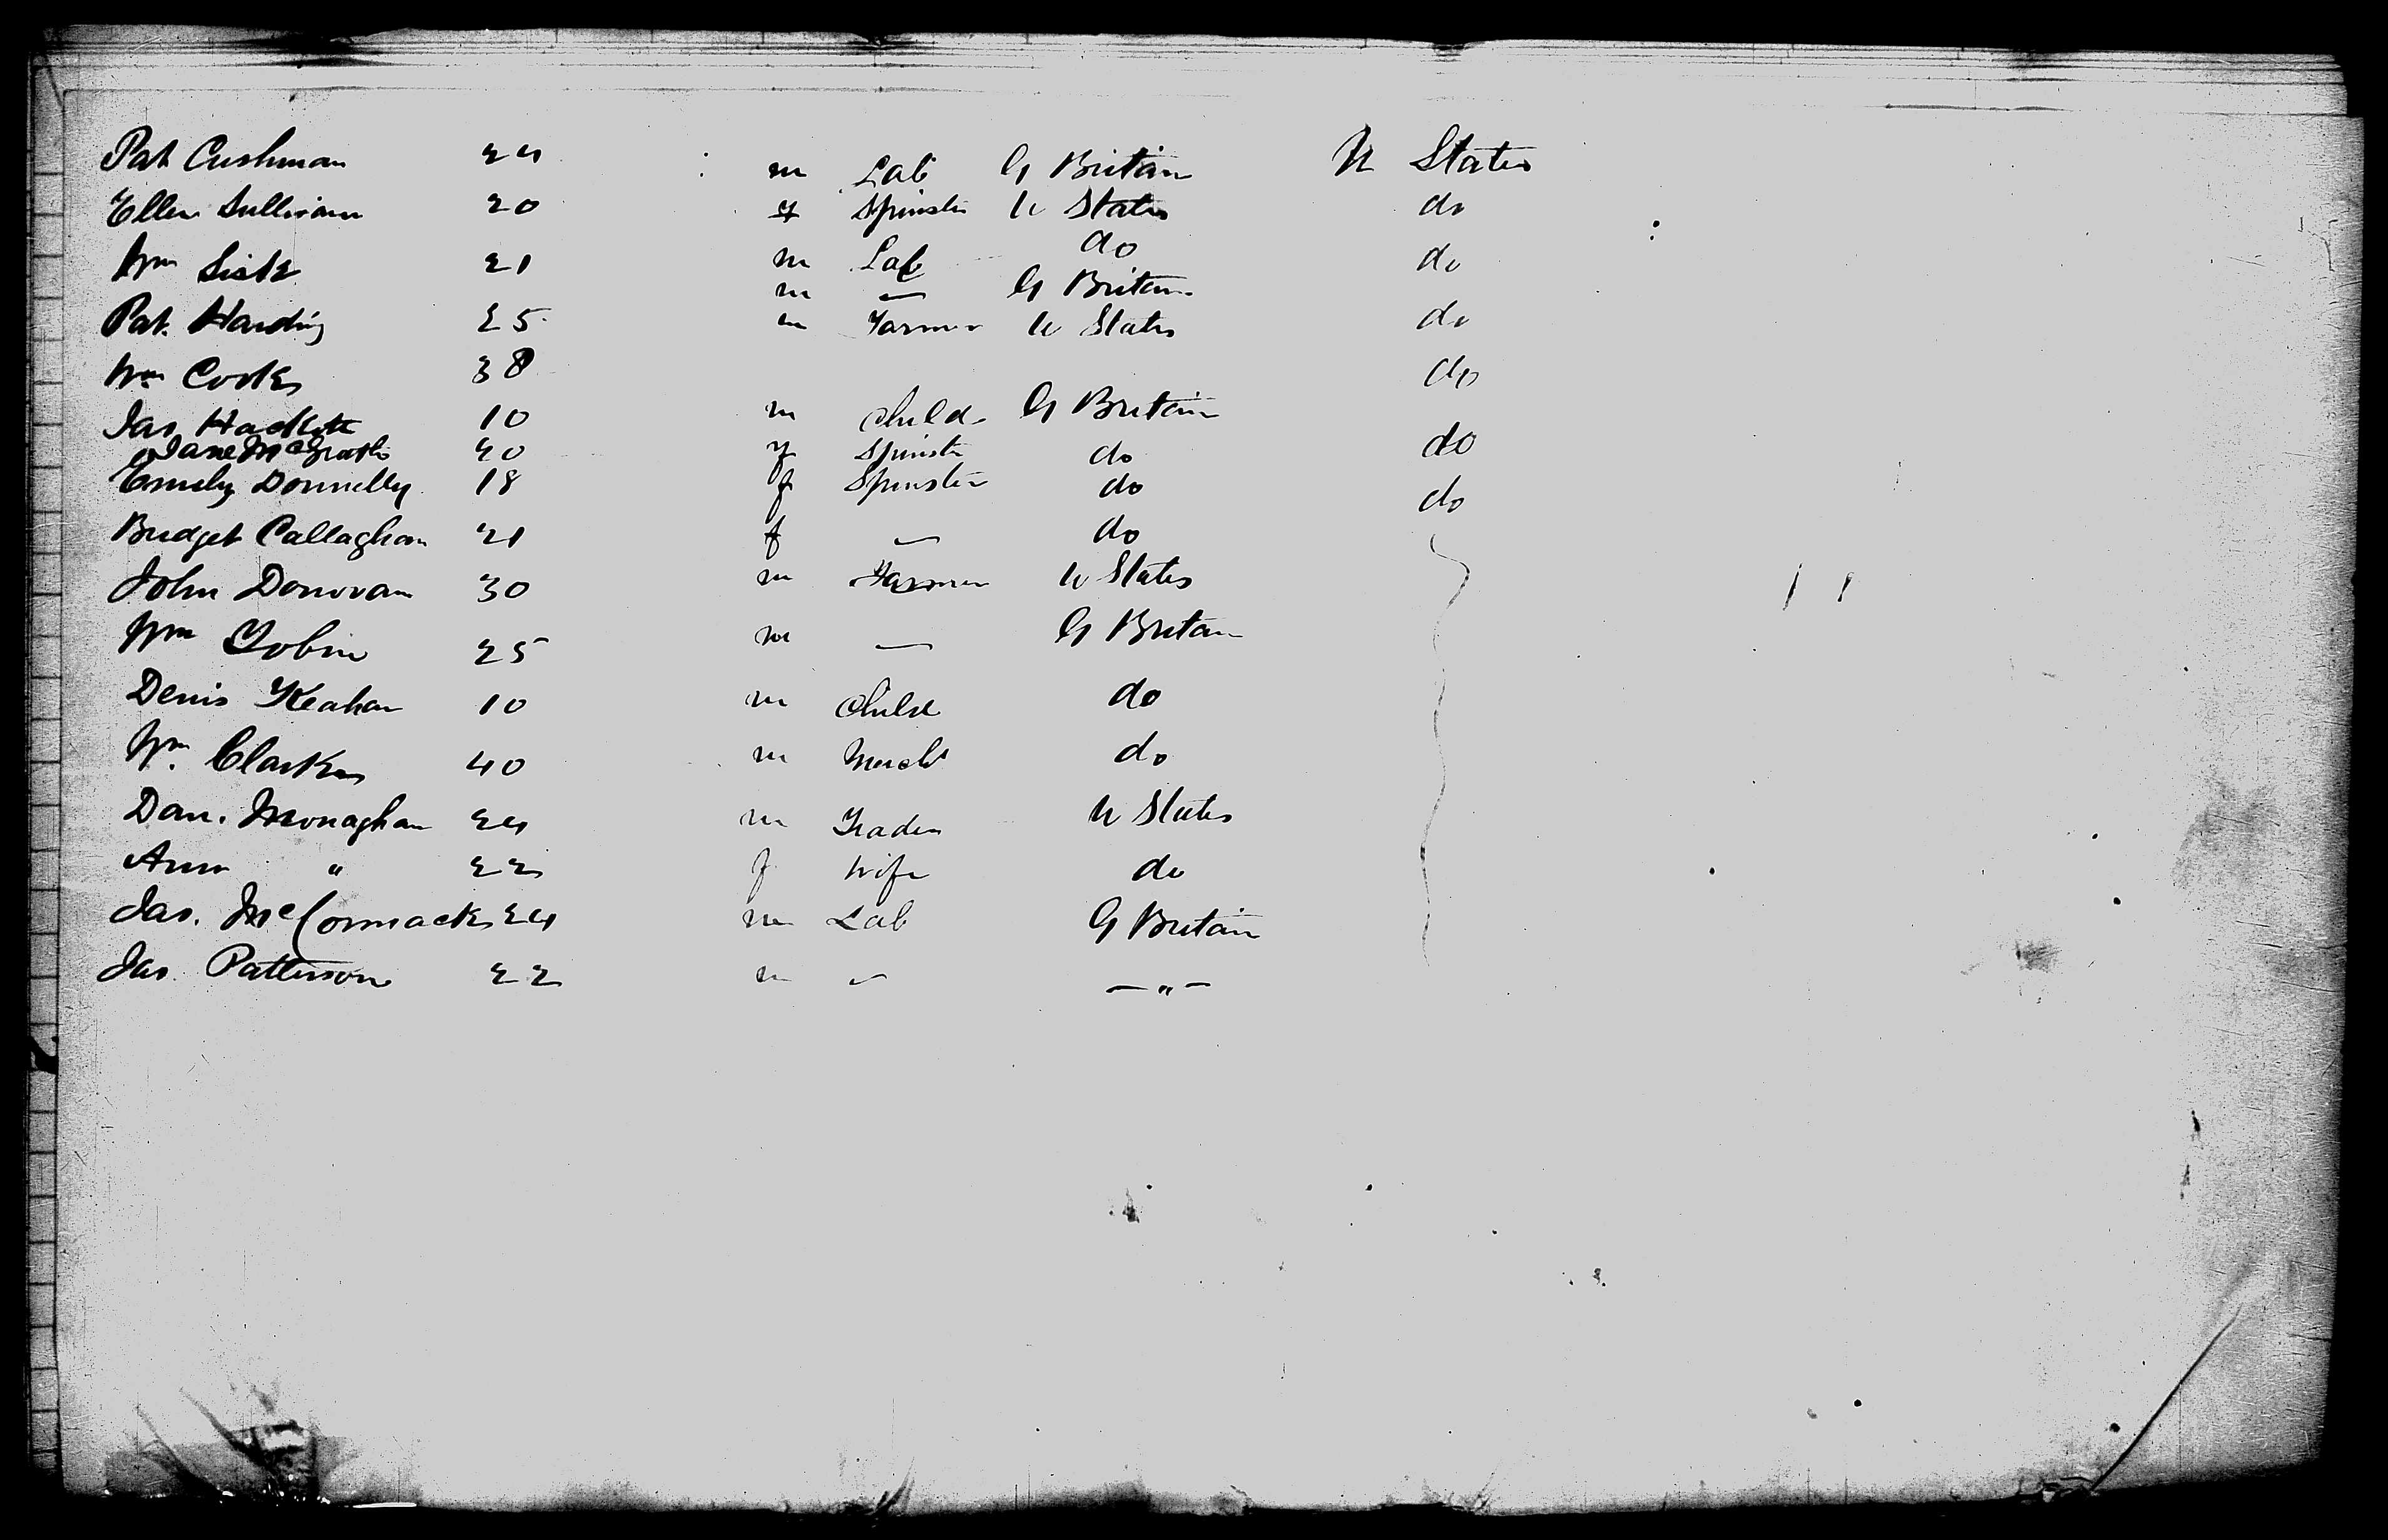 Pat Cushman 24 m Lab G Britain U States
Ellen Sullivan 20 f Spinster U States do
Wm Sisk 21 m Lab do do
Pat. Harding 25 m — G Britain do
Wm Cooke 38 m Farmer U States do
Jas Hackett 10 m Child G Britain do
Jane McGrath 40 f Spinster do
Emily Donnelly 18 f Spinster do do
Bridget Callaghan 21 f — do
John Donovan 30 m Farmer U States
Wm Tobin 25 m — G Britain
Denis Keahan 10 m Child do
Wm. Clarke 40 m Mercht do
Dan. Monaghan 24 m Trader U States
Ann " 22 f Wife do
Jas. McCormack 24 m Lab G Britain
Jas. Patterson 22 m — — " —